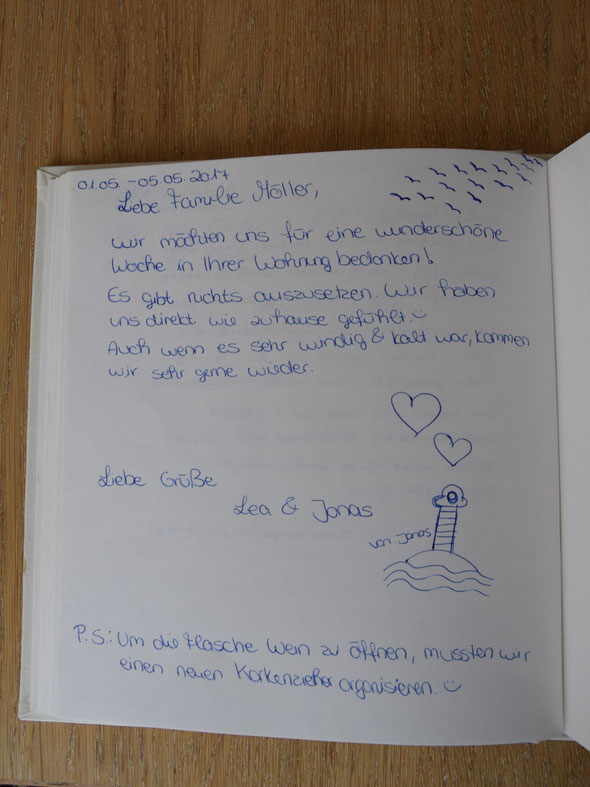 01.05. - 05.05.2017
Liebe Familie Möller,
wir möchten uns für eine wunderschöne
Woche in Ihrer Wohnung bedanken!
Es gibt nichts auszusetzen. Wir haben
uns direkt wie zuhause gefühlt. ☺
Auch wenn es sehr windig & kalt war, kommen
wir sehr gerne wieder.
Liebe Grüße
Lea & Jonas
von Jonas
P.S.: Um die Flasche Wein zu öffnen, mussten wir
einen neuen Korkenzieher organisieren. ☺